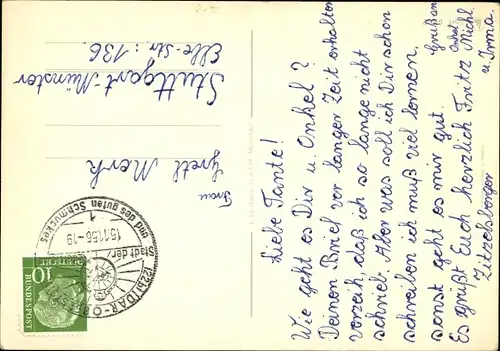 Liebe Tante!
Wie geht es Dir u. Onkel?
Deinen Brief vor langer Zeit erhalten
verzeih, daß ich so lange nicht
schrieb. Aber was soll ich Dir schon
schreiben ich muß viel lernen,
sonst geht es mir gut.
Es grüßt Euch herzlich Fritz
Zitzelsberger
Gruß an
Onkel Michl.
u. Irma.
Frau
Gretl Merk
Stuttgart-Münster
Elbe-Str.: 136.
(22b) IDAR-OB
Stadt der
15.11.56-19
1
und des guten Schmuckes
10
DEUTSCHE
BUNDESPOST